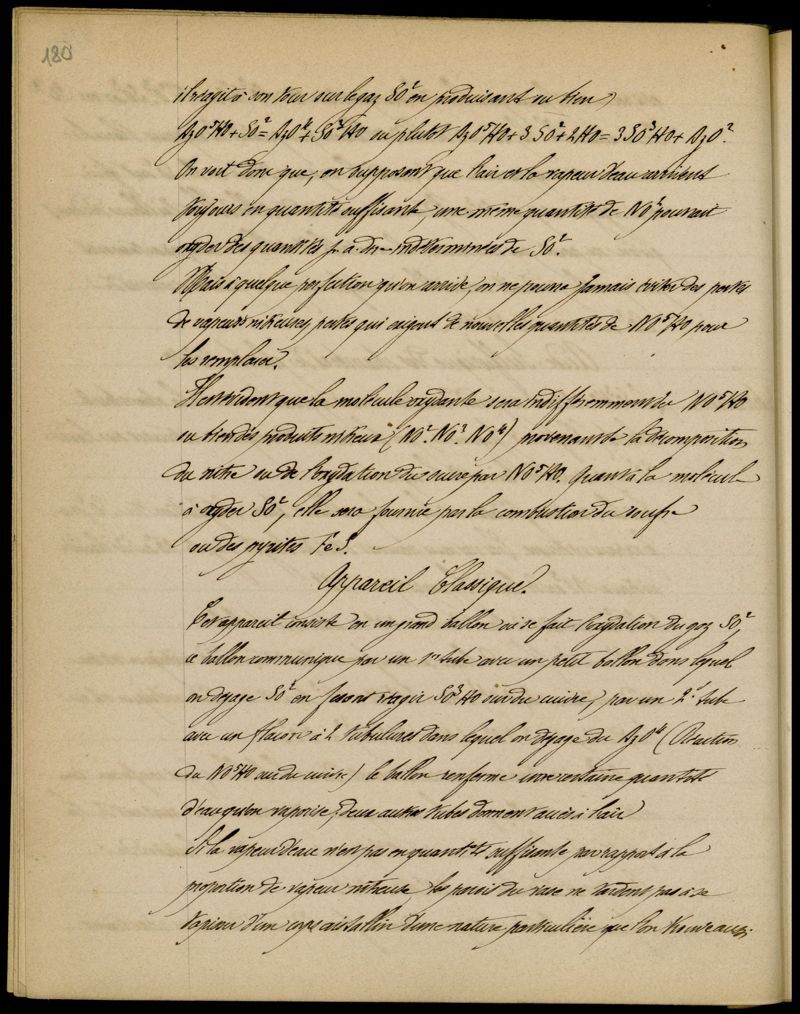 180
il réagit à son tour sur le gaz SO² en produisant ou bien
AzO⁵HO + SO² = AzO⁴ + SO³HO ou plutôt AzO⁵HO + 3SO² + 2HO = 3SO³HO + AzO².
On voit donc que, en supposant que l'air et la vapeur d'eau arrivent
toujours en quantité suffisante une même quantité de NO² pourrait
oxyder des quantités p. à dre indéterminées de SO².
Mais à quelque perfection qu'on arrive, on ne pourra jamais éviter des pertes
de vapeurs nitreuses, pertes qui exigent de nouvelles quantités de NO⁵HO pour
les remplacer.
Il est évident que la molécule oxydante sera indifféremment de NO⁵HO
ou bien des produits nitreux (NO². NO³. NO⁴) provenant de la décomposition
du nitre ou de l'oxydation du cuivre par NO⁵HO. Quant à la molécule
à oxyder SO², elle sera fournie par la combustion du soufre
ou des pyrites FeS.
Appareil Classique.
Cet appareil consiste en un grand ballon où se fait l'oxydation du gaz SO²,
ce ballon communique par un 1er tube avec un petit ballon dans lequel
on dégage SO² en faisant réagir SO³HO sur du cuivre, par un 2e tube
avec un flacon à 2 tubulures dans lequel on dégage du AzO⁴ (Réaction
du NO⁵HO sur du cuivre) le ballon renferme une certaine quantité
d'eau qu'on vaporise, deux autres tubes donnent accès à l'air
Si la vapeur d'eau n'est pas en quantité suffisante par rapport à la
proportion de vapeur nitreuse les parois du vase ne tardent pas à se
tapisser d'un corps cristallin d'une nature particulière que l'on trouve aussi